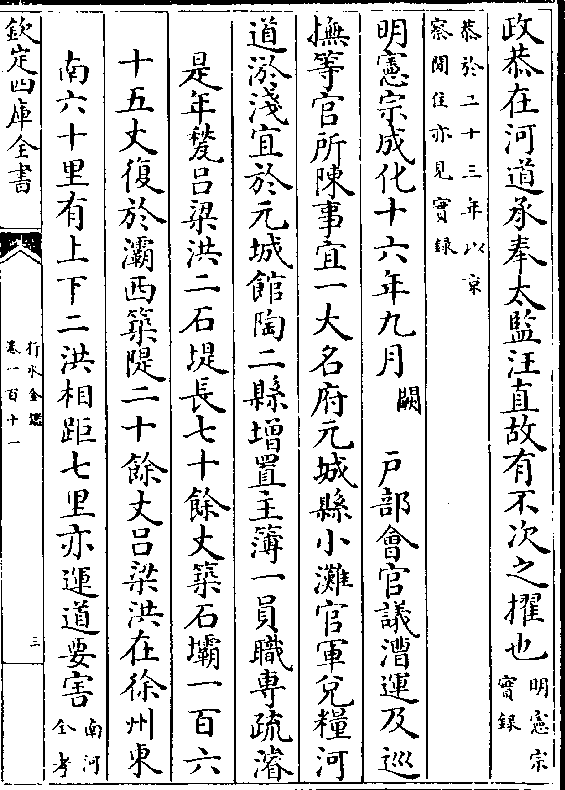 政恭在河道承奉太監汪直故有不次之擢也明憲宗實錄
恭於二十三年以京
察閒住亦見實錄
明憲宗成化十六年九月闕　戸部會官議漕運及巡
撫等官所陳事宜一大名府元城縣小灘官軍兌糧河
道淤淺宜於元城館陶二縣增置主簿一員職專疏濬
是年甃呂梁洪二石堤長七十餘丈築石壩一百六
十五丈復於灞西築隄二十餘丈呂梁洪在徐州東
南六十里有上下二洪相距七里亦運道要害南河全考
欽定四庫全書
行水金鑑
卷一百十一
三